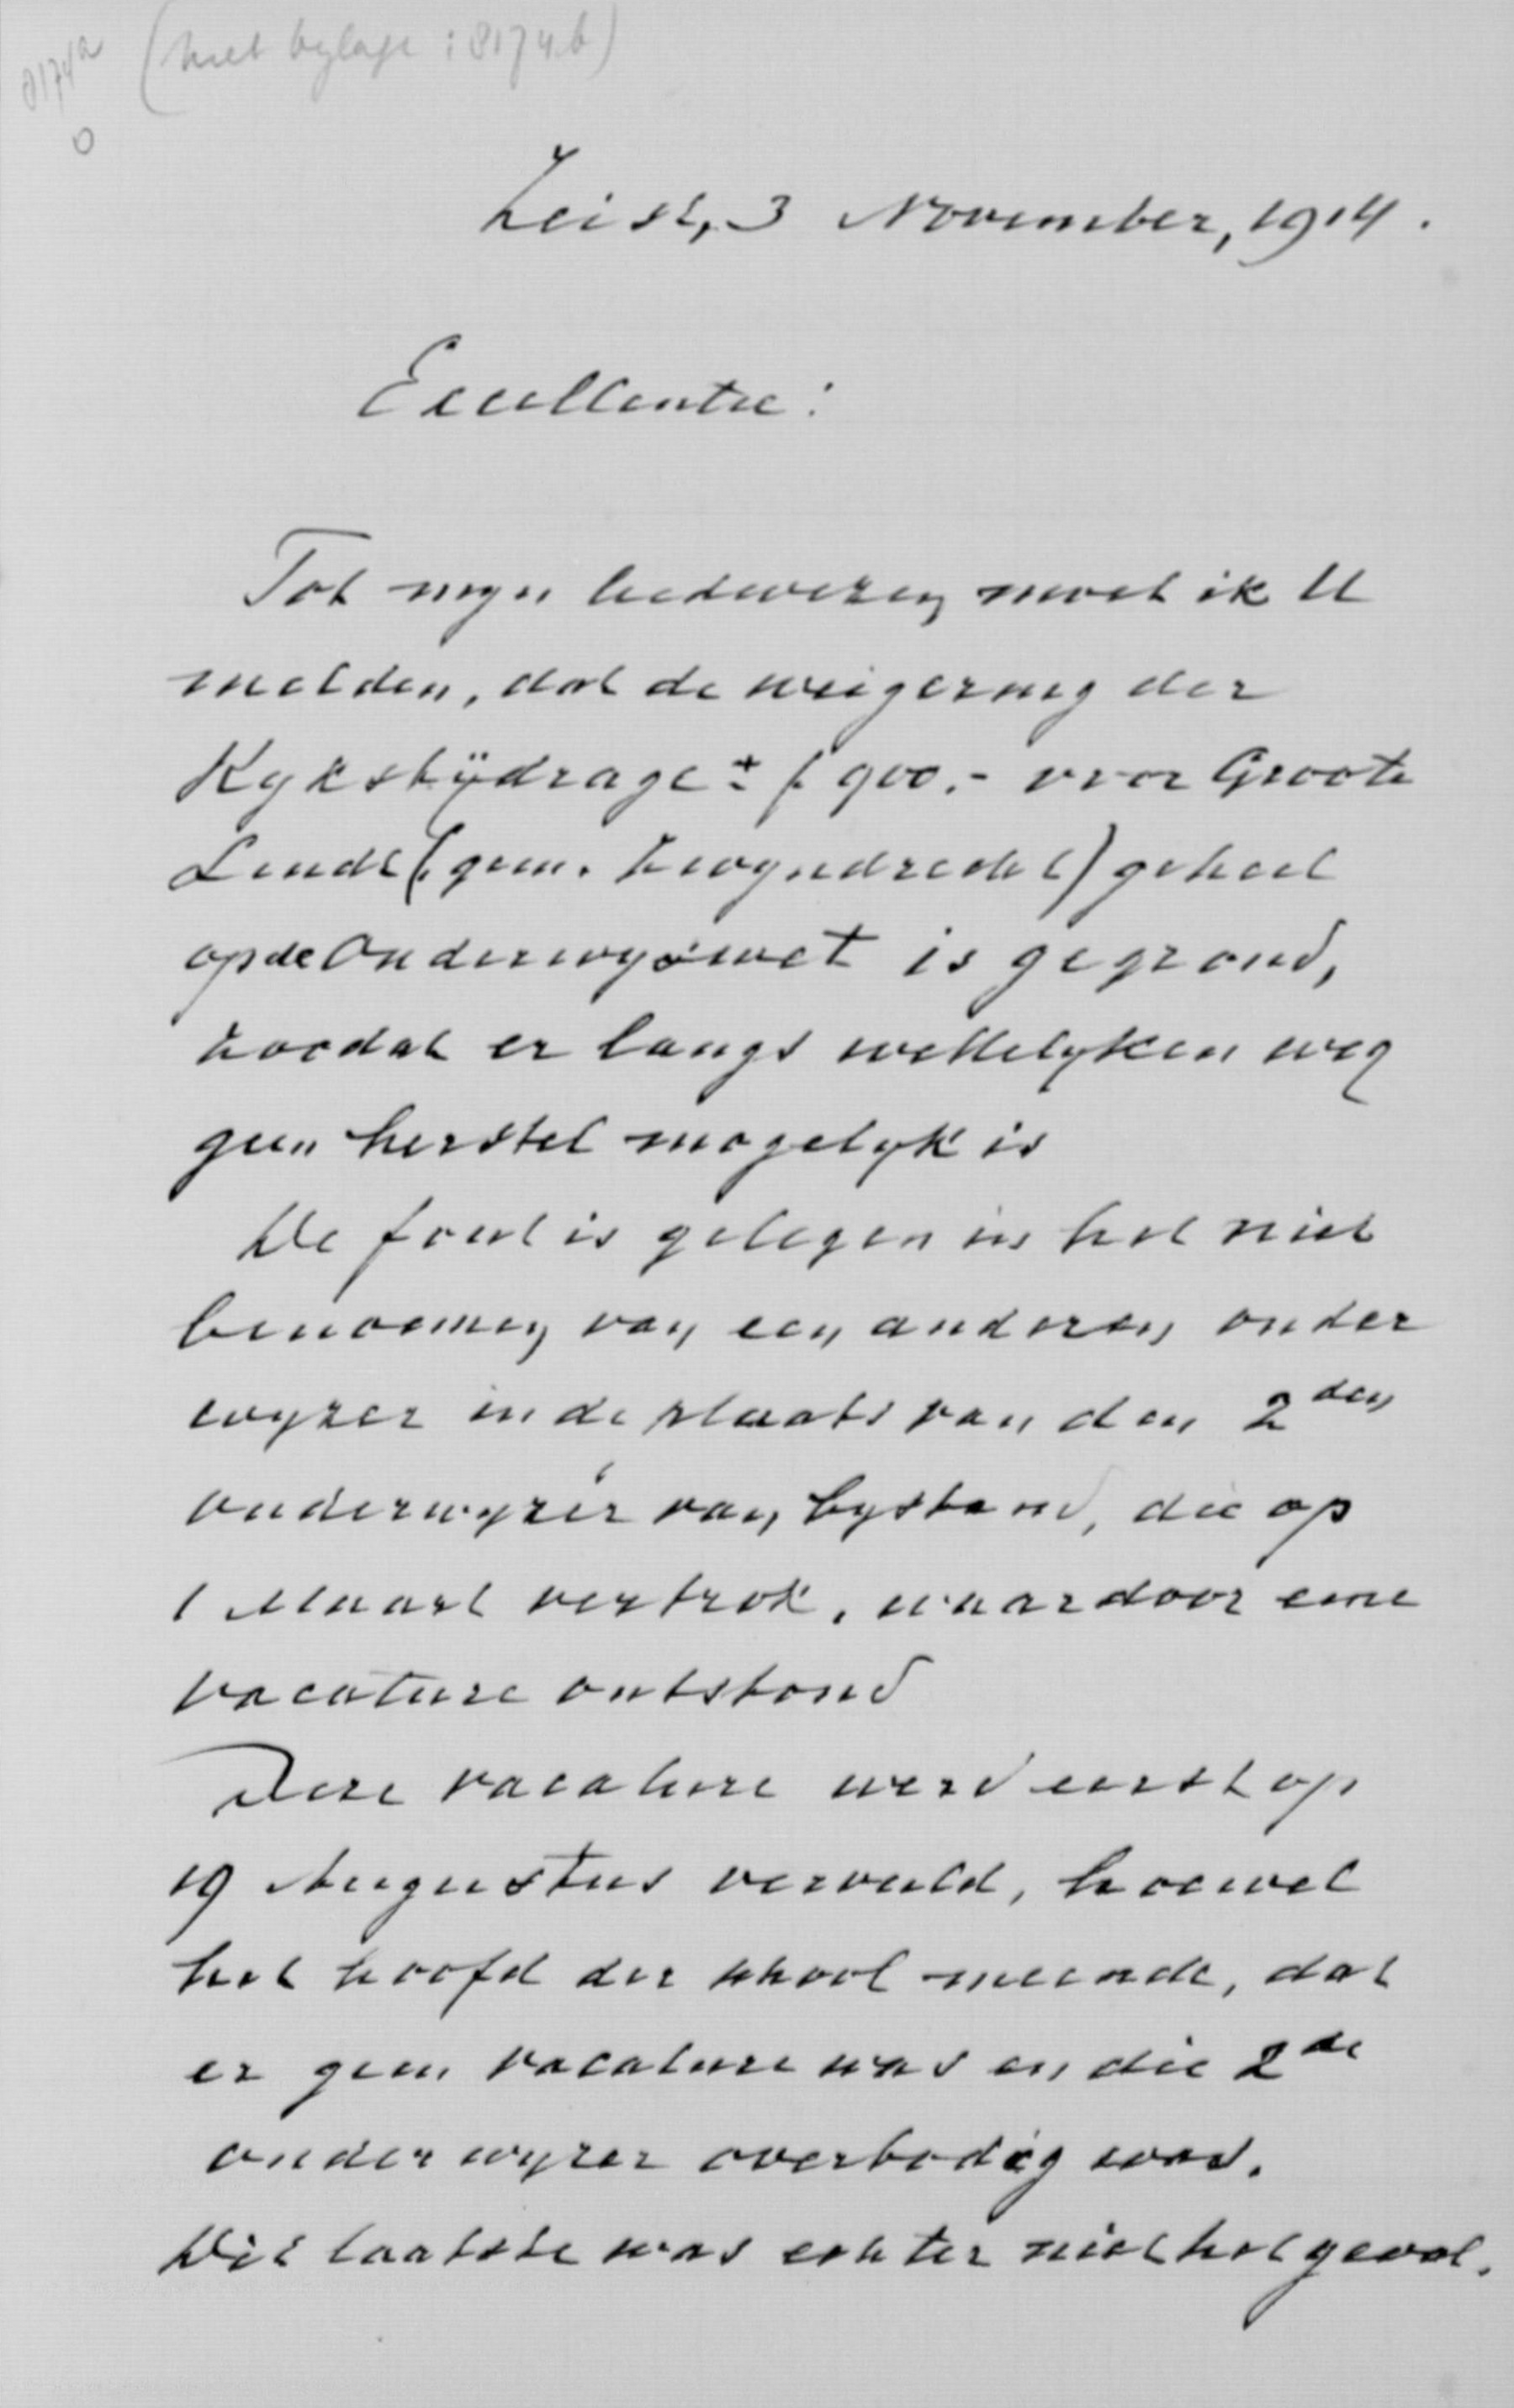 8174a (met bylage: 8174b)
0
Zeist, 3 November, 1914.
Excellentie:
Tot myn leedwezen moet ik U
melden, dat de weigering der
Ryksbÿdrage ± f 900.- voor Groote
Lindt (gem. Zwyndrecht) geheel
op de Onderwyswet is gegrond,
zoodat er langs wettelyken weg
geen herstel mogelyk is
De fout is gelegen in het niet
benoemen van een anderen onder
wyzer in de plaats van den 2den
onderwyzer van bystand, die op
1 Maart vertrok, waardoor eene
vacature ontstond
Deze vacature werd eerst op
19 Augustus vervuld, hoewel
het hoofd der school meende, dat
er geen vacature was en die 2de
onderwyzer overbodig was.
Dit laatste was echter niet het geval.